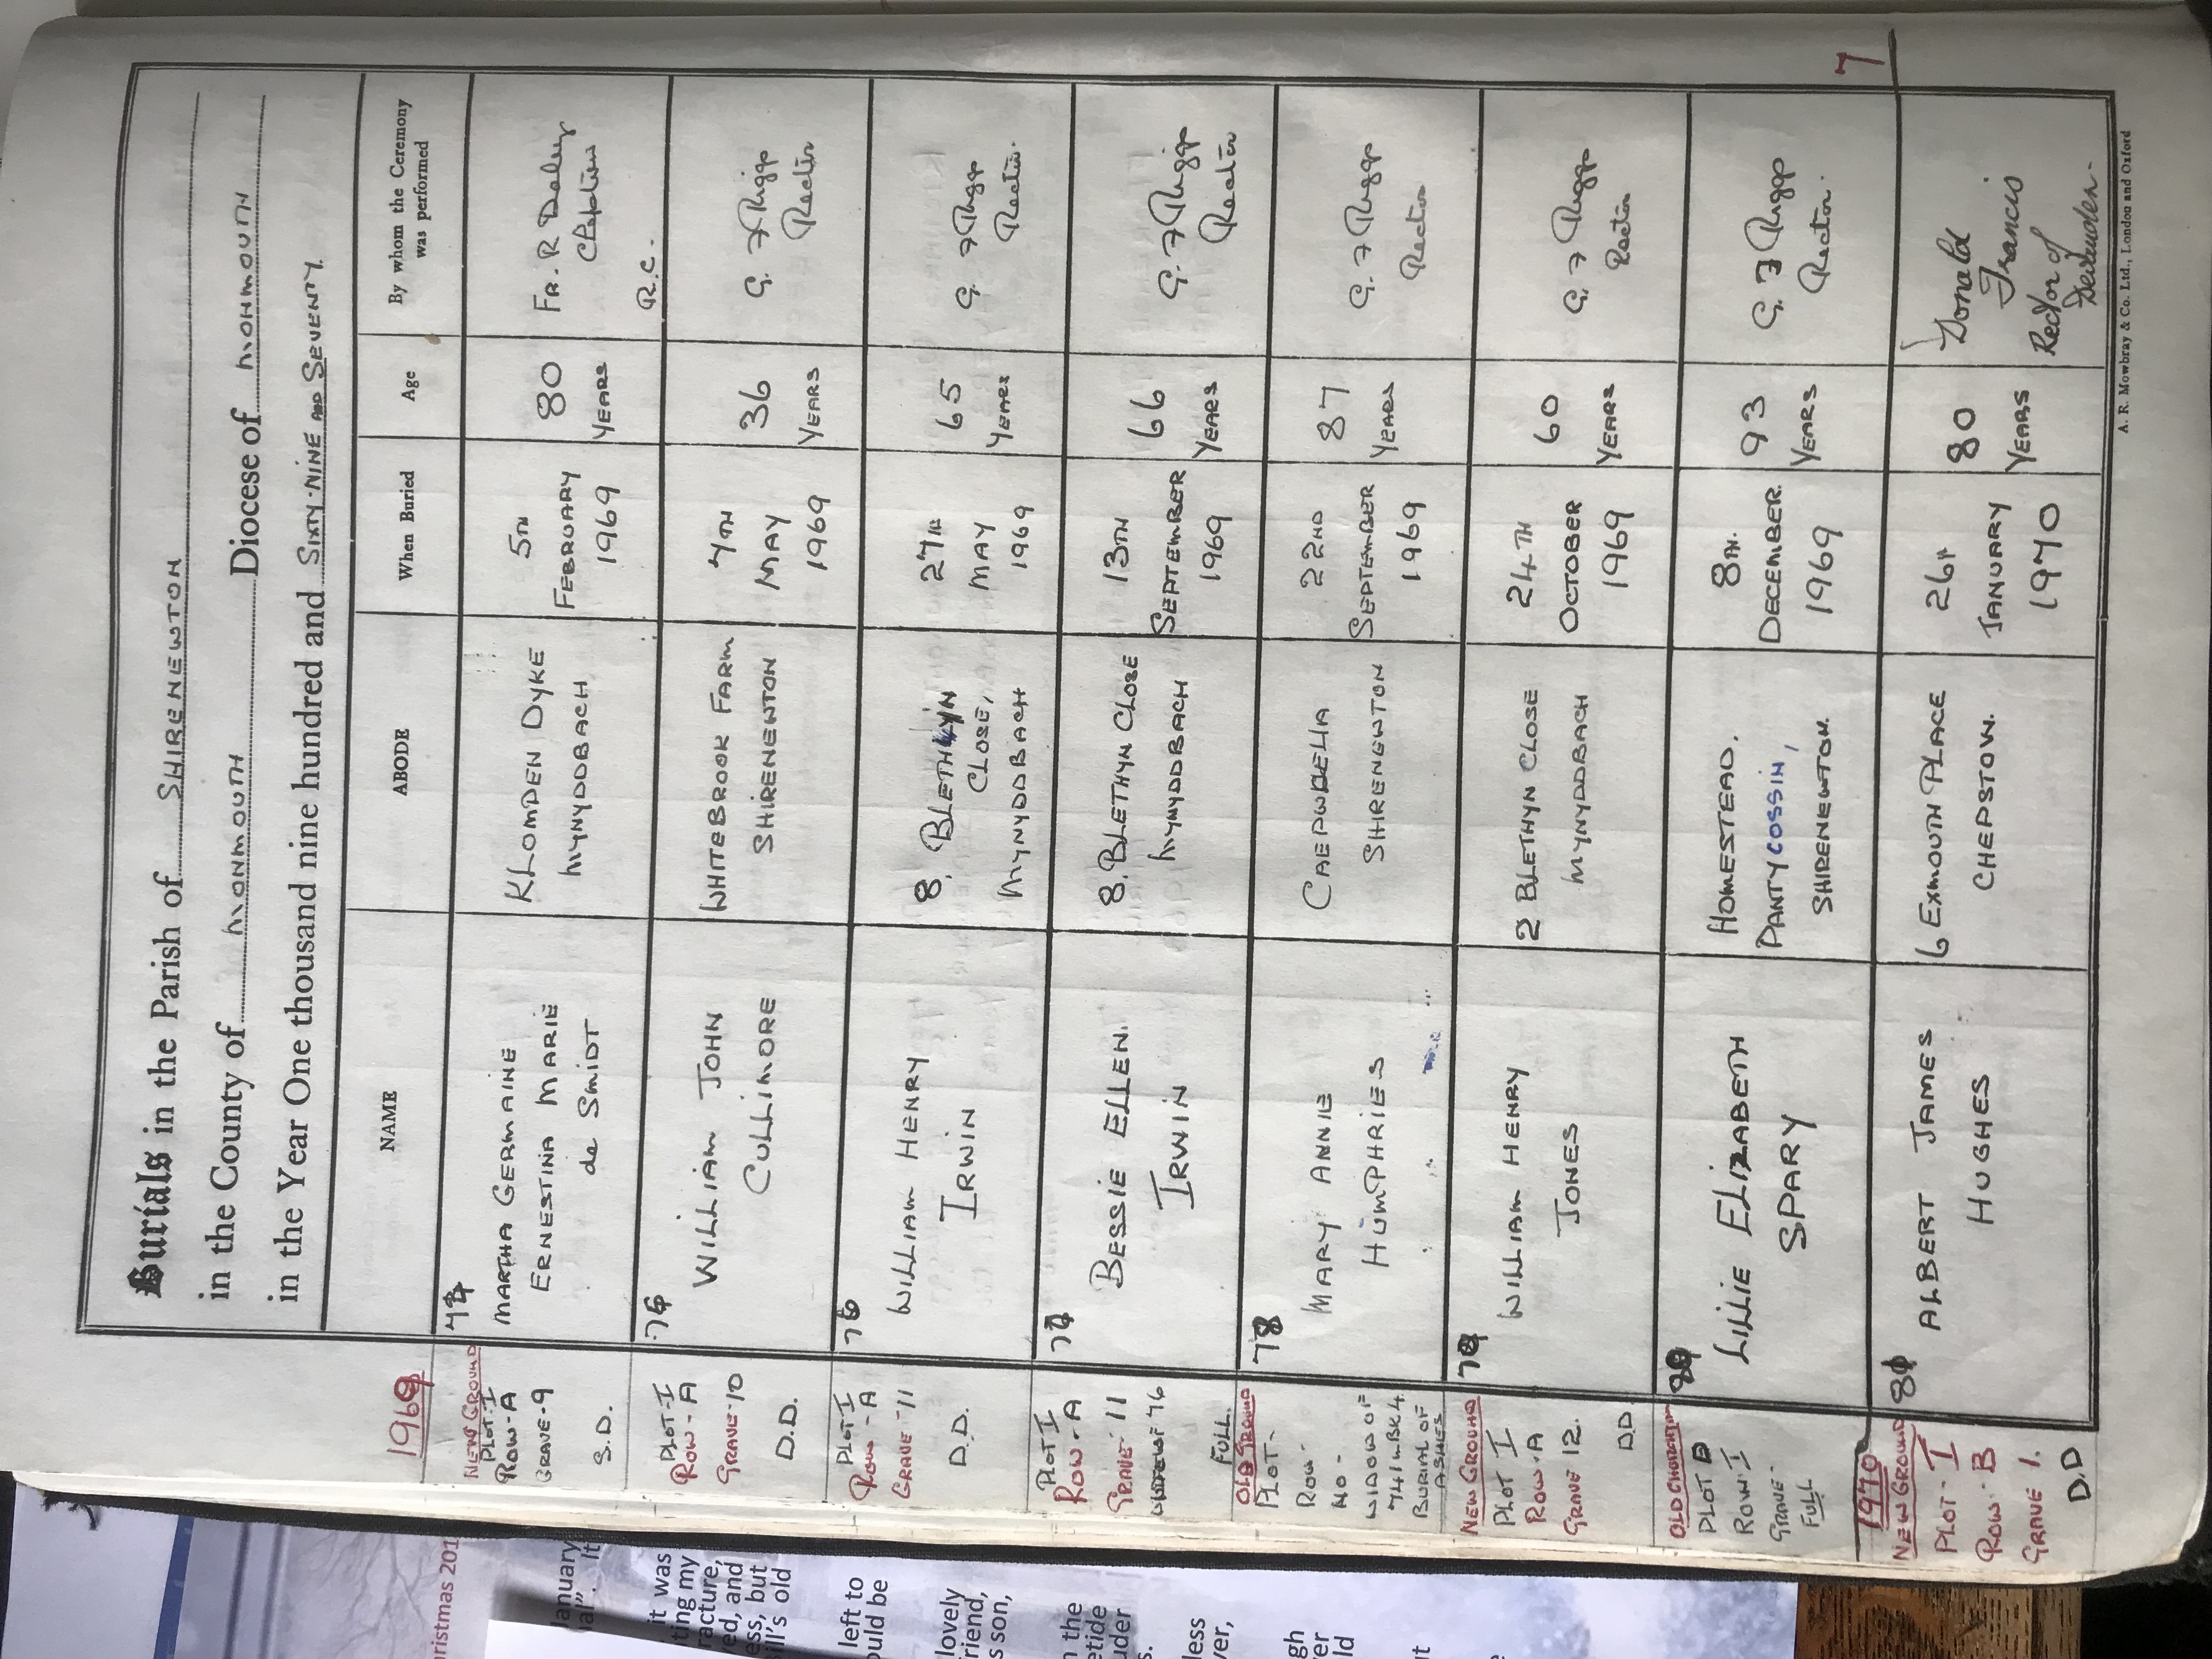 Burials in the Parish of SHIRENEWTON
in the County of MONMOUTH Diocese of MONMOUTH
in the Year One thousand nine hundred and SIXTY-NINE AND SEVENTY.
NAME ABODE When Buried Age By whom the Ceremony was performed
1969
NEW GROUND
PLOT-I
ROW-A
GRAVE-9
S.D.
MARTHA GERMAINE
ERNESTINA MARIE
de SMIDT
KLOMPEN DYKE
MYNYDDBACH
5TH
FEBRUARY
1969
80
YEARS
FR. R Daley
R.C.
PLOT-I
ROW-A
GRAVE-10
D.D.
76
WILLIAM JOHN
CULLIMORE
WHITEBROOK FARM
SHIRENEWTON
7TH
MAY
1969
36
YEARS
G. F Riggs
Rector
PLOT I
ROW-A
GRAVE-11
D.D.
76
WILLIAM HENRY
IRWIN
8, BLETHYN
CLOSE,
MYNYDDBACH
27TH
MAY
1969
65
YEARS
G. F Riggs
Rector.
PLOT I
ROW-A
GRAVE-11
WIDOW OF 76
FULL.
77
BESSIE ELLEN.
IRWIN
8. BLETHYN CLOSE
MYNYDDBACH
13TH
SEPTEMBER
1969
66
YEARS
G. F Riggs
Rector
OLD GROUND
PLOT-
ROW-
NO-
WIDOW OF
741 WBK4.
BURIAL OF
ASHES
78
MARY ANNIE
HUMPHRIES
CAEPWDELLA
SHIRENEWTON
22ND
SEPTEMBER
1969
87
YEARS
G. F Riggs
Rector
NEW GROUND
PLOT I
ROW-A
GRAVE 12.
D.D.
79
WILLIAM HENRY
JONES
2 BLETHYN CLOSE
MYNYDDBACH
24TH
OCTOBER
1969
60
YEARS
G. F Riggs
Rector
OLD CHURCHYARD
PLOT D
ROW-I
GRAVE-
FULL
80
LILLIE ELIZABETH
SPARY
HOMESTEAD.
PANTYCOSSIN,
SHIRENEWTON.
8TH.
DECEMBER.
1969
93
YEARS
G. F Riggs
Rector.
7
1970
NEW GROUND
PLOT-I
ROW-B
GRAVE 1.
D.D
81
ALBERT JAMES
HUGHES
6 EXMOUTH PLACE
CHEPSTOW.
26TH
JANUARY
1970
80
YEARS
Donald
Francis
Rector of
A. R. Mowbray & Co. Ltd., London and Oxford
ristmas 201
January
al". It
it was
ting my
racture,
ed, and
ess, but
ill's old
left to
ould be
lovely
riend,
s son,
n the
etide
uder
s.
less
ver,
gh
er
ld
ut
e